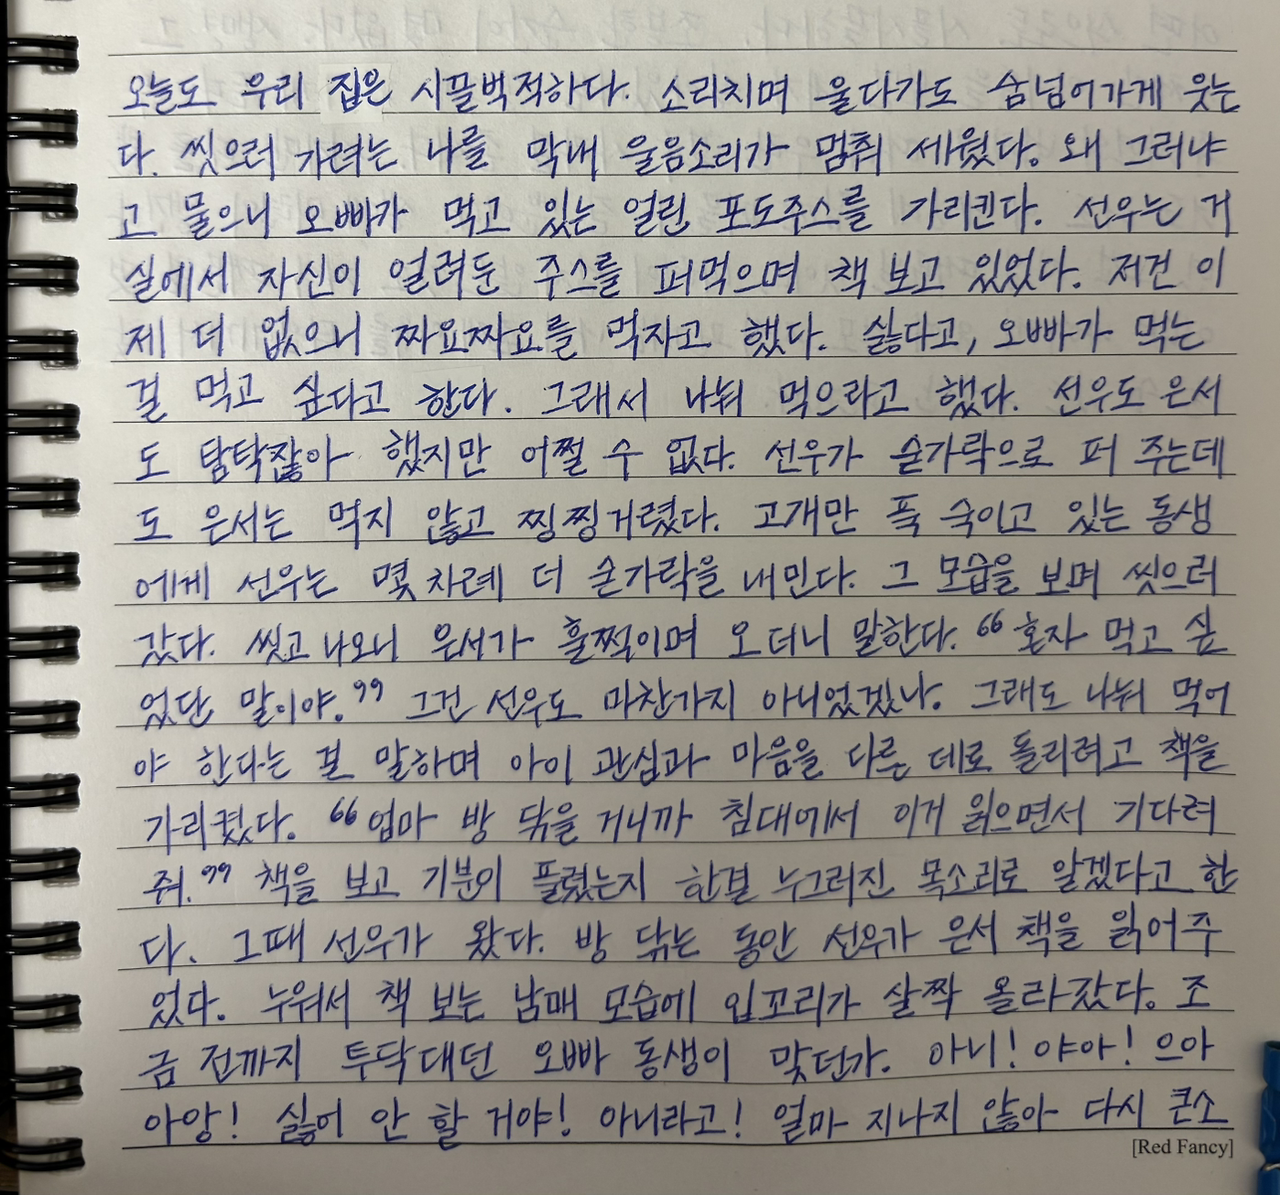 오늘도 우리 집은 시끌벅적하다. 소리치며 울다가도 숨넘어가게 웃는
다. 씻으러 가려는 나를 막내 울음소리가 멈춰 세웠다. 왜 그러냐
고 물으니 오빠가 먹고 있는 얼린 포도주스를 가리킨다. 선우는 거
실에서 자신이 얼려둔 주스를 퍼먹으며 책 보고 있었다. 저건 이
제 더 없으니 짜요짜요를 먹자고 했다. 싫다고, 오빠가 먹는
걸 먹고 싶다고 한다. 그래서 나눠 먹으라고 했다. 선우도 은서
도 탐탁잖아 했지만 어쩔 수 없다. 선우가 숟가락으로 퍼 주는데
도 은서는 먹지 않고 찡찡거렸다. 고개만 푹 숙이고 있는 동생
에게 선우는 몇 차례 더 숟가락을 내민다. 그 모습을 보며 씻으러
갔다. 씻고 나오니 은서가 훌쩍이며 오더니 말한다. “혼자 먹고 싶
었단 말이야.” 그건 선우도 마찬가지 아니었겠나. 그래도 나눠 먹어
야 한다는 걸 말하며 아이 관심과 마음을 다른 데로 돌리려고 책을
가리켰다. “엄마 방 닦을 거니까 침대에서 이거 읽으면서 기다려
줘.” 책을 보고 기분이 풀렸는지 한결 누그러진 목소리로 알겠다고 한
다. 그때 선우가 왔다. 방 닦는 동안 선우가 은서 책을 읽어주
었다. 누워서 책 보는 남매 모습에 입꼬리가 살짝 올라갔다. 조
금 전까지 투닥대던 오빠 동생이 맞던가. 아니! 야아! 으아
아앙! 싫어 안 할 거야! 아니라고! 얼마 지나지 않아 다시 큰소
[Red Fancy]